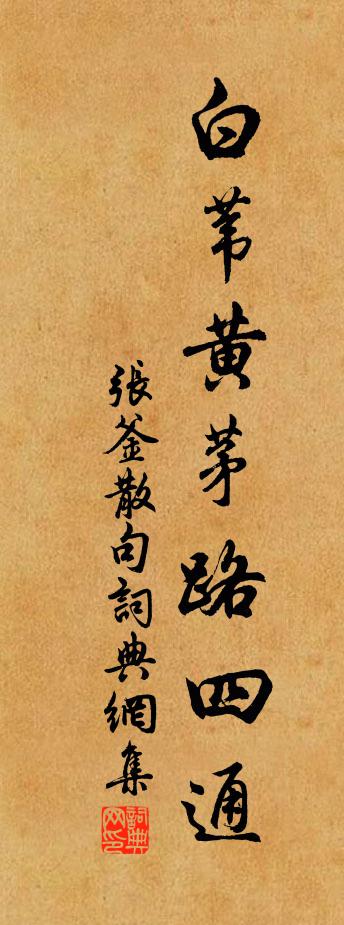 白苇黄茅路四通
張釜散句詞典網集
詞典网印